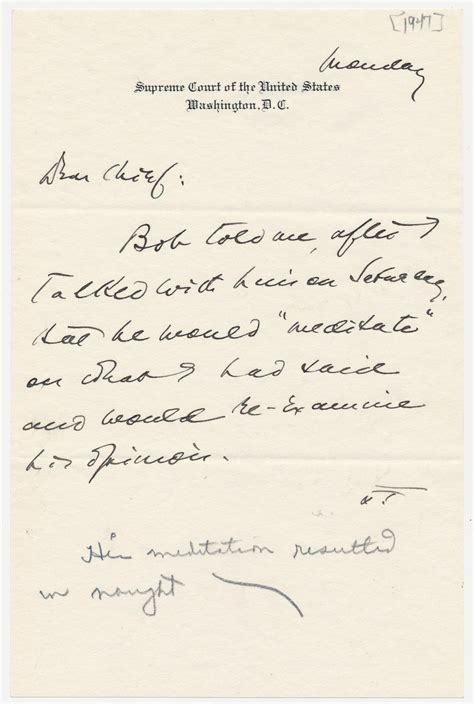 [1947]
Monday
Supreme Court of the United States
Washington, D.C.
Dear Chief:
Bob told me, after I
talked with him on Saturday,
that he would "meditate"
on what I had said
and would re-examine
his opinion.
His meditation resulted
in nought